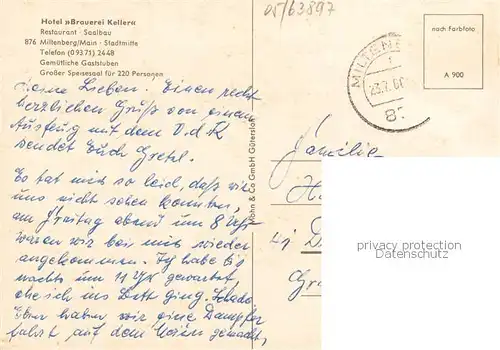 05/63897
Hotel »Brauerei Keller«
Restaurant · Saalbau
876 Miltenberg/Main · Stadtmitte
Telefon (0 93 71) 24 48
Gemütliche Gaststuben
Großer Speisesaal für 220 Personen
nach Farbfoto
A 900
MILTENBE
23.7.
87
Meine Lieben. Einen recht
herzlichen Gruß von einem
Ausflug mit dem V.d.K
sendet Euch Gretel.
Es tat mir so leid, daß wir
uns nicht sehen konnten,
am Freitag abend um 8 Uhr
waren wir bei mir wieder
angekommen. Ich habe bis
nachts um 11 Uhr gewartet,
ehe ich ins Bett ging. Schade
Eben haben wir eine Dampfer
fahrt auf dem Main gemacht,
Mohn & Co GmbH Gütersloh
Familie
H
41 D
Gr
privacy protection
Datenschutz